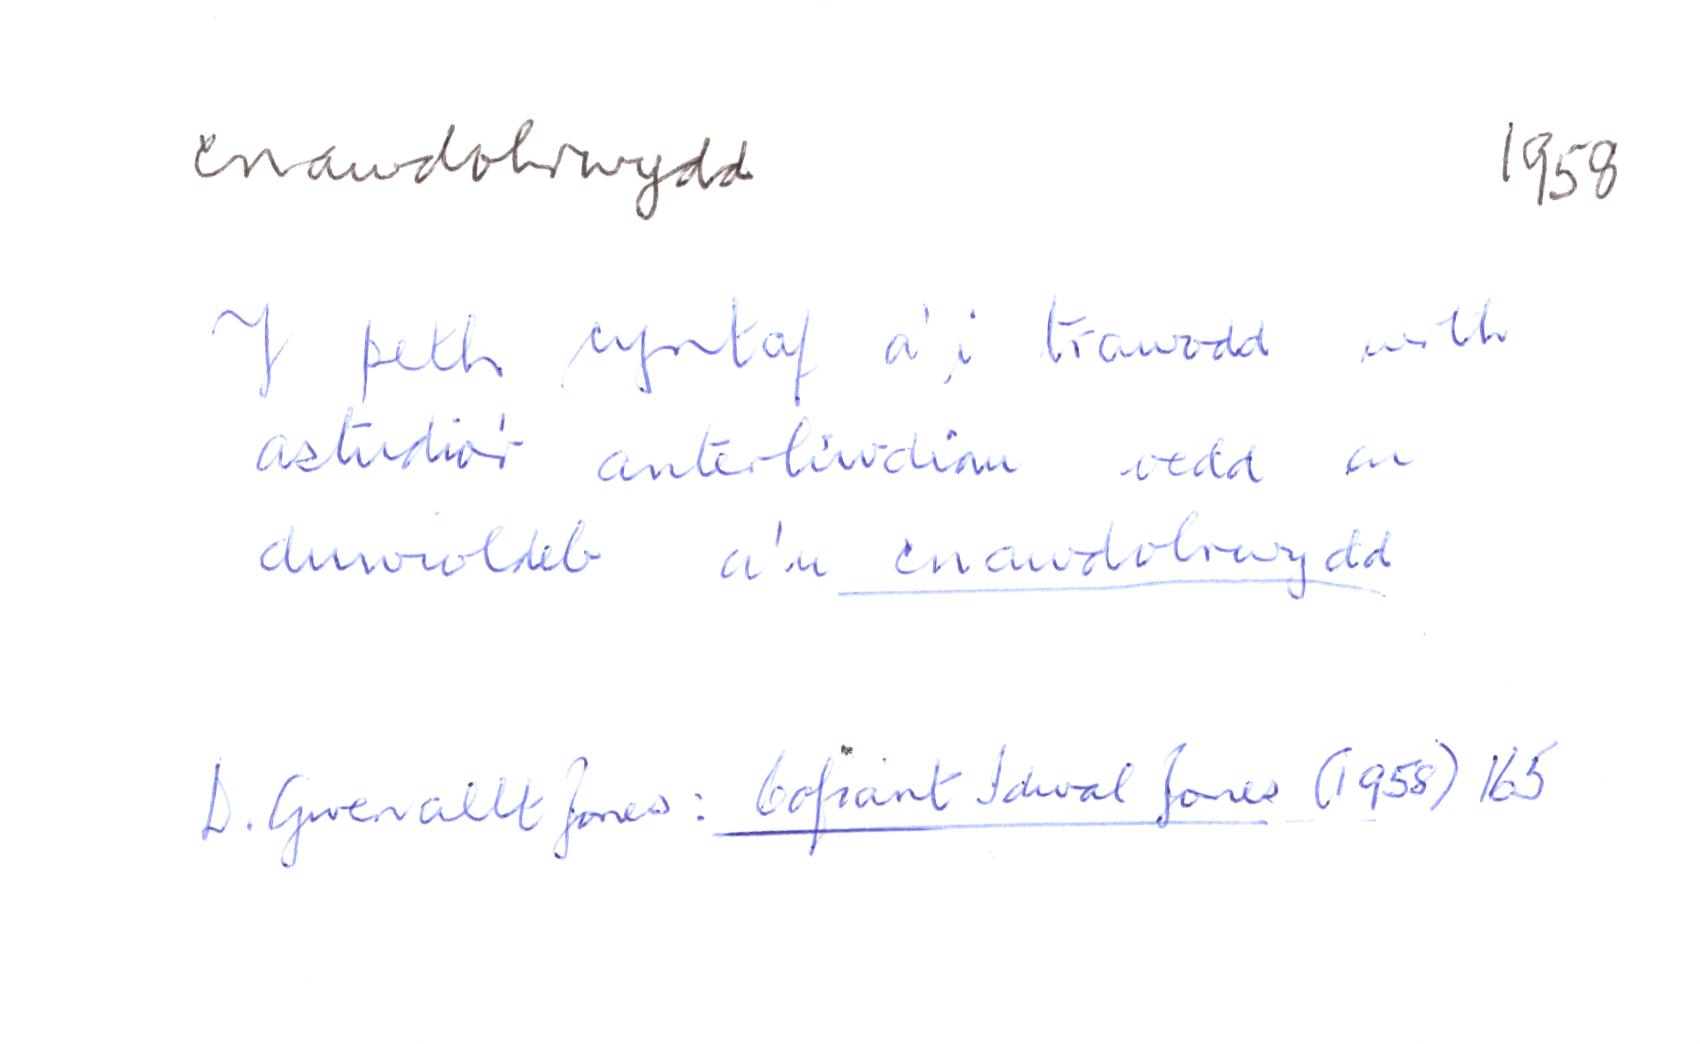 cnawdolrwydd 1958
Y peth cyntaf a'i trawodd wrth
astudio'r anterliwdiau oedd eu
duwioldeb a'u cnawdolrwydd
D. Gwenallt Jones: Cofiant Idwal Jones (1958) 165